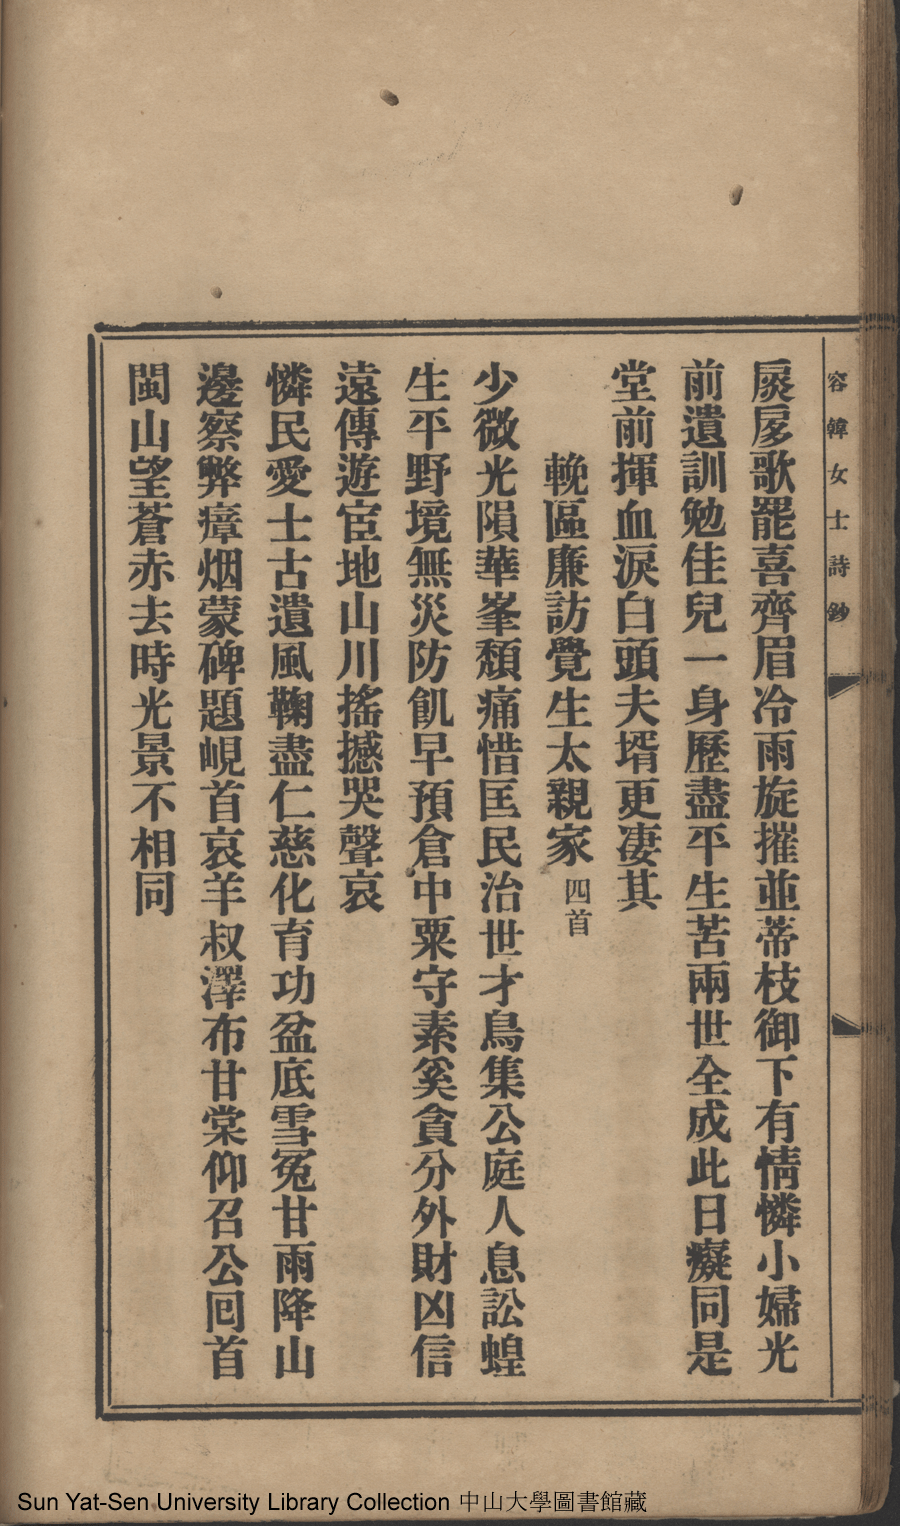 容韓女士詩鈔
扊扅歌罷喜齊眉冷雨旋摧並蒂枝御下有情憐小婦光
前遺訓勉佳兒一身歷盡平生苦兩世全成此日癡同是
堂前揮血淚白頭夫壻更凄其
輓區廉訪覺生太親家 四首
少微光隕華峯頹痛惜匡民治世才鳥集公庭人息訟蝗
生平野境無災防飢早預倉中粟守素奚貪分外財凶信
遠傳遊宦地山川搖撼哭聲哀
憐民愛士古遺風鞠盡仁慈化育功盆底雪冤甘雨降山
邊察弊瘴烟蒙碑題峴首哀羊叔澤布甘棠仰召公囘首
閩山望蒼赤去時光景不相同
Sun Yat-Sen University Library Collection 中山大學圖書館藏